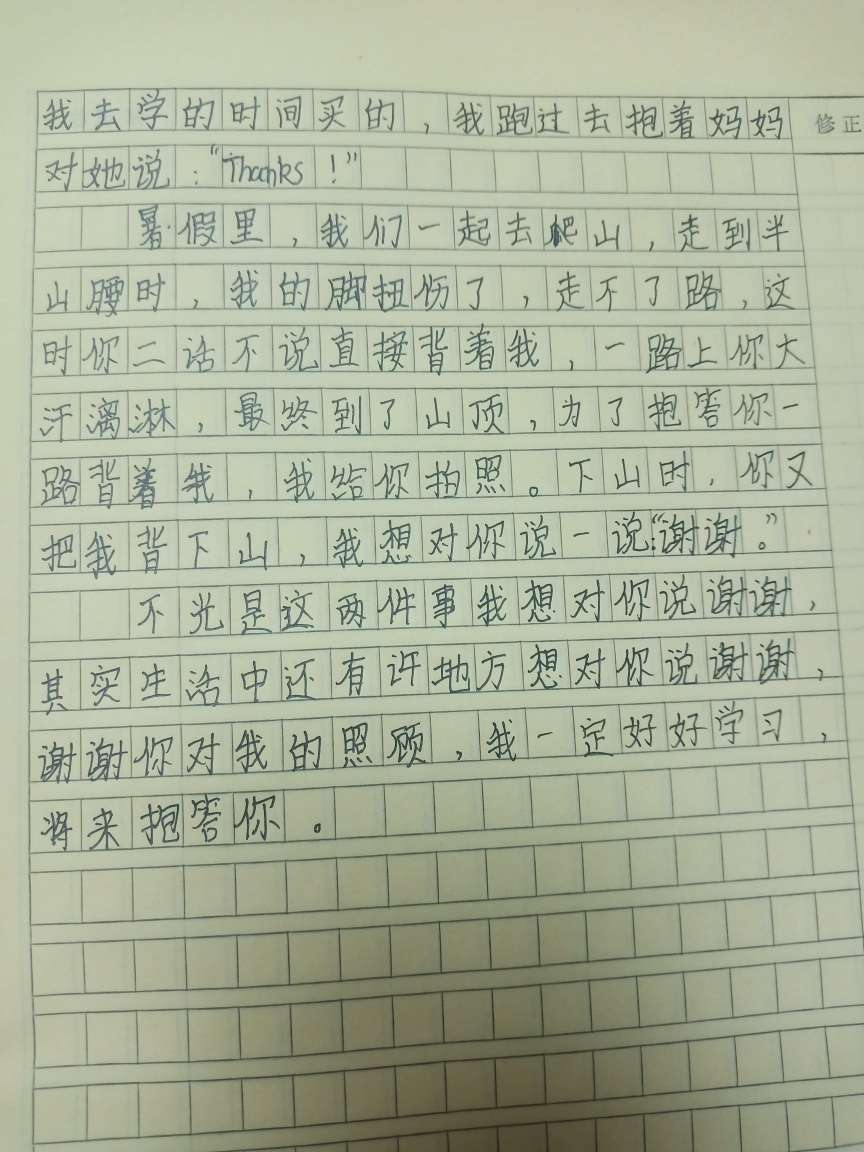 我去学的时间买的，我跑过去抱着妈妈
修正
对她说：“Thanks！”
暑假里，我们一起去爬山，走到半
山腰时，我的脚扭伤了，走不了路，这
时你二话不说直接背着我，一路上你大
汗漓淋，最终到了山顶，为了抱答你一
路背着我，我给你拍照。下山时，你又
把我背下山，我想对你说一说：“谢谢。”
不光是这两件事我想对你说谢谢，
其实生活中还有许地方想对你说谢谢，
谢谢你对我的照顾，我一定好好学习，
将来抱答你。